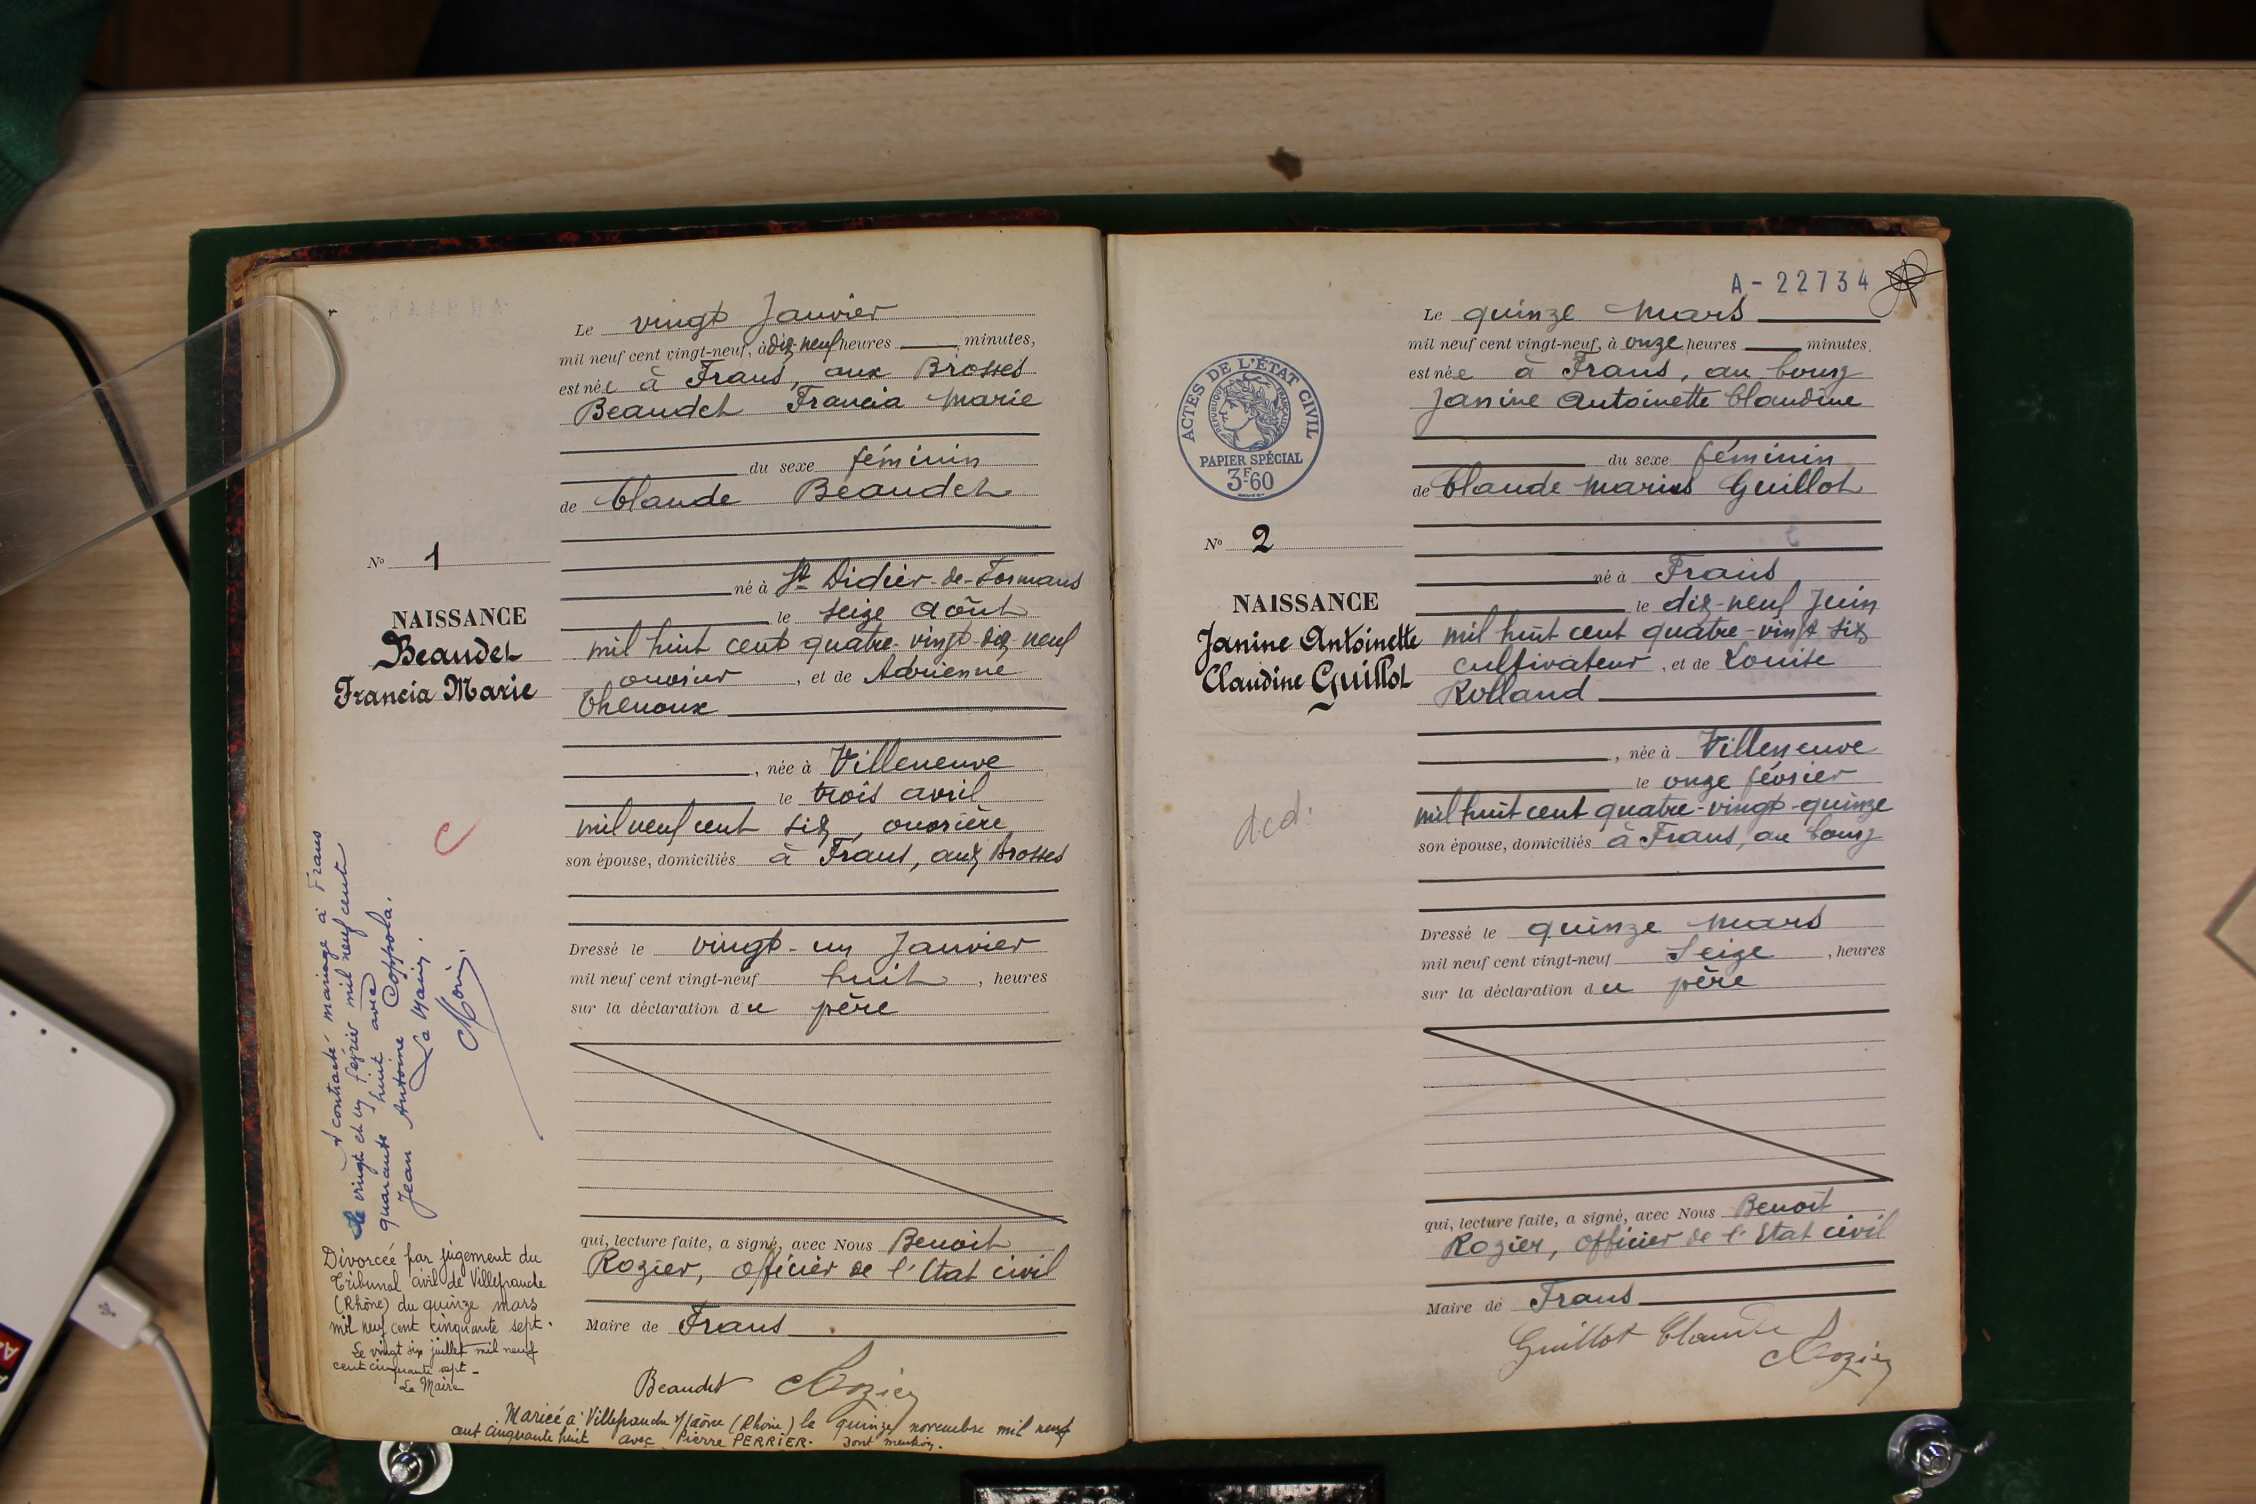 Le vingt Janvier
mil neuf cent vingt-neuf, à dix-neuf heures minutes,
est née à Frans, aux Brosses
Beaudet Francia Marie
du sexe féminin
de Claude Beaudet
né à St Didier-de-Formans
le seize août
mil huit cent quatre-vingt-dix-neuf
ouvrier, et de Adrienne
Thenoux
, née à Villeneuve
le trois avril
mil neuf cent six, ouvrière
son épouse, domiciliés à Frans, aux Brosses
Dressé le vingt-un Janvier
mil neuf cent vingt-neuf huit, heures
sur la déclaration du père
qui, lecture faite, a signé, avec Nous Benoit
Rozier, officier de l'Etat civil
Maire de Frans
Beaudet Rozier
No 1
NAISSANCE
Beaudet
Francia Marie
C
A contracté mariage à Frans
le vingt et un février mil neuf cent
quarante huit avec
Jean Antoine Coppola.
Le Maire.
Divorcée par jugement du
Tribunal civil de Villefranche
(Rhône) du quinze mars
mil neuf cent cinquante sept.
Le vingt six juillet mil neuf
cent cinquante sept -
Le Maire
Mariée à Villefranche s/Saône (Rhône) le quinze novembre mil neuf
cent cinquante huit avec Pierre PERRIER. Dont mention.
A-22734
ACTES DE L'ÉTAT CIVIL
RÉPUBLIQUE FRANÇAISE
PAPIER SPÉCIAL
3F60
No 2
NAISSANCE
Janine Antoinette
Claudine Guillot
dcd.
Le quinze Mars
mil neuf cent vingt-neuf, à onze heures minutes.
est née à Frans, au bourg
Janine Antoinette Claudine
du sexe féminin
de Claude Marius Guillot
né à Frans
le dix-neuf Juin
mil huit cent quatre-vingt six
cultivateur, et de Louise
Rolland
, née à Villeneuve
le onze février
mil huit cent quatre-vingt-quinze
son épouse, domiciliés à Frans, au bourg
Dressé le quinze Mars
mil neuf cent vingt-neuf Seize, heures
sur la déclaration du père
qui, lecture faite, a signé, avec Nous Benoit
Rozier, officier de l'Etat civil
Maire de Frans
Guillot Claude
Rozier